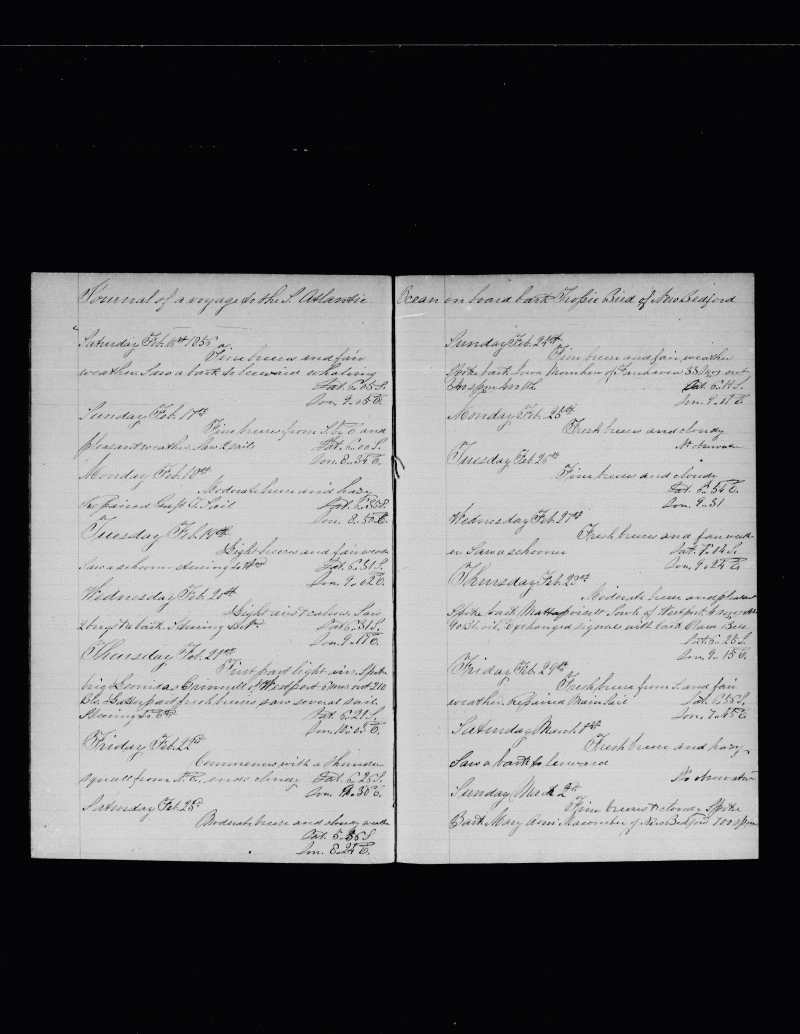 Journal of a voyage to the S. Atlantic
Saturday Feb. 16th 1856
Fine breeze and fair
weather. Saw a bark to leeward whaling
Lat. 6..05 S.
Lon. 9..05 E.
Sunday Feb. 17th
Fine breeze from S. by E and
pleasant weather. Saw 2 sails Lat. 6..00 S.
Lon. 8..34 E.
Monday Feb. 18th
Moderate breeze and hazy
Repaired Sail Lat. 6..35 S.
Lon. 8..50 E.
Tuesday Feb. 19th
Light breezes and fair weather
Saw a schooner steering to Wd Lat. 6..31 S.
Lon. 9..02 E.
Wednesday Feb. 20th
Light airs & calms. Saw
2 brigs & a bark steering Lat. 6..31 S.
Lon. 9..11 E.
Thursday Feb. 21st
First part light airs. Spoke
brig Leonidas of Westport out 210
Bls. Latter part fresh breezes saw several sail
Steering to Lat. 6..21 S.
Lon. 10..05 E.
Friday Feb. 22d
Commences with a thunder
squall from N.E., ends cloudy Lat. 6..25 S.
Lon. E.
Saturday Feb. 23d
Moderate breeze and cloudy weather
Lat. 5..35 S
Lon. 8..24 E.
Ocean on board bark Tropic Bird of New Bedford
Sunday Feb. 24th
Fine breeze and fair weather
Spoke bark of Fairhaven 33 mos out
sperm Lat. 6..14 S.
Lon. 9..17 E.
Monday Feb. 25th
Fresh breeze and cloudy
No observation
Tuesday Feb. 26th
Fine breeze and cloudy
Lat. 6..54
Lon. 9..31
Wednesday Feb. 27th
Fresh breeze and fair weath-
er Saw a schooner Lat. 7..14 S.
Lon. 9..24 E.
Thursday Feb.
Moderate breeze and pleasant
Spoke bark Mattapoisett of Westport
90 bls. oil, Exchanged signals with bark
Lat. 6..25 S.
Lon. 9..15 E.
Friday Feb. 29th
Fresh breeze from and fair
weather. Repaired Main Sail Lat. 6..35 S.
Lon. 7..45 E.
Saturday March 1st
Fresh breeze and hazy
Saw a bark to leeward
No observation
Sunday March 2d
Fine breeze & cloudy. Spoke
Bark Mary Ann Macomber of New Bedford 700 sperm